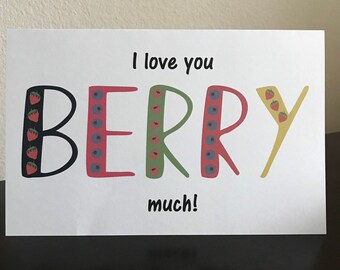 I love you
BERRY
much!